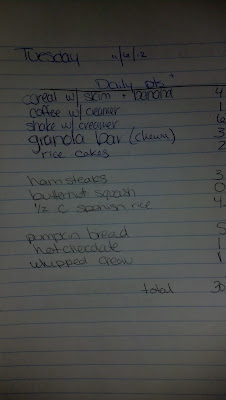 Tuesday
Daily pts +
cereal w/ skim + banana 4
coffee w/ creamer 1
shake w/ creamer 6
granola bar (chewy) 3
rice cakes 2
ham steaks 3
butternut squash 0
1/2 c spanish rice 4
pumpkin bread 5
hot chocolate 1
whipped cream 1
total 30